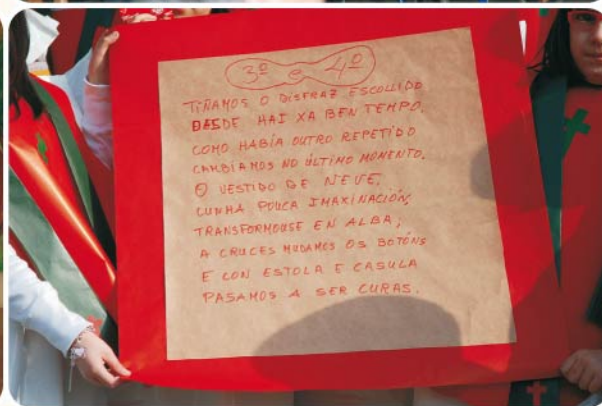 3º e 4º
TIÑAMOS O DISFRAZ ESCOLLIDO
DESDE HAI XA BEN TEMPO.
COMO HABÍA OUTRO REPETIDO
CAMBIAMOS NO ÚLTIMO MOMENTO.
O VESTIDO DE NEVE,
CUNHA POUCA IMAXINACIÓN,
TRANSFORMOUSE EN ALBA;
A CRUCES MUDAMOS OS BOTÓNS
E CON ESTOLA E CASULA
PASAMOS A SER CURAS.